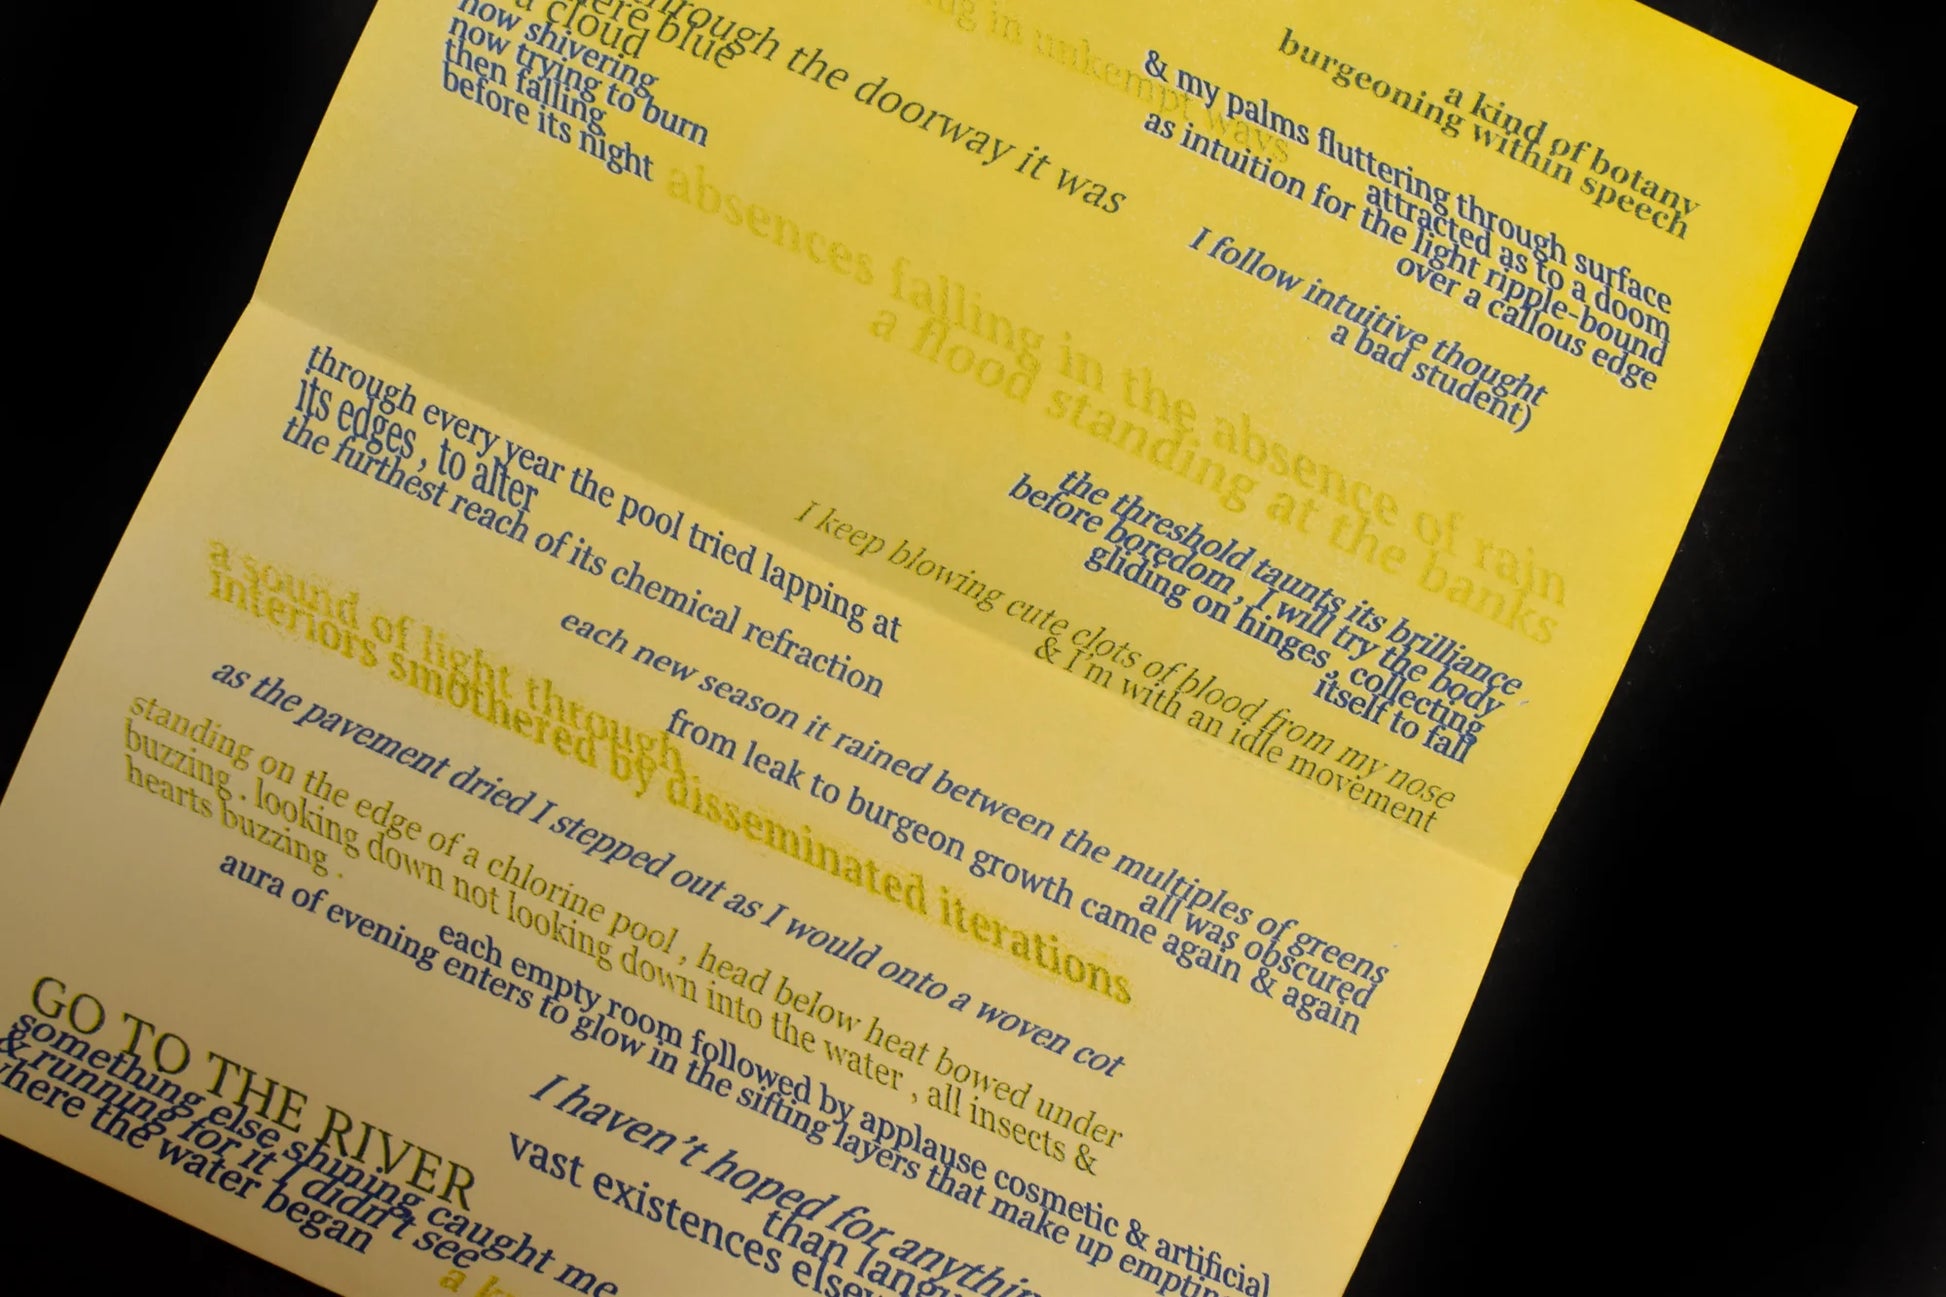 through the doorway it was
here blue
a cloud
now shivering
now trying to burn
then falling
before its night
in unkempt ways
a kind of botany
burgeoning within speech
& my palms fluttering through surface
attracted as to a doom
as intuition for the light ripple-bound
over a callous edge
I follow intuitive thought
a bad student)
absences falling in the absence of rain
a flood standing at the banks
the threshold taunts its brilliance
before boredom , I will try the body
gliding on hinges , collecting
itself to fall
through every year the pool tried lapping at
its edges , to alter
the furthest reach of its chemical refraction
I keep blowing cute clots of blood from my nose
& I'm with an idle movement
each new season it rained between the multiples of greens
all was obscured
from leak to burgeon growth came again & again
a sound of light through
interiors smothered by disseminated iterations
as the pavement dried I stepped out as I would onto a woven cot
standing on the edge of a chlorine pool , head below heat bowed under
buzzing . looking down not looking down into the water , all insects &
hearts buzzing .
each empty room followed by applause cosmetic & artificial
aura of evening enters to glow in the sifting layers that make up
GO TO THE RIVER
something else shining caught me
& running for it I didn't see
where the water began
I haven't hoped for
than
vast existences
a